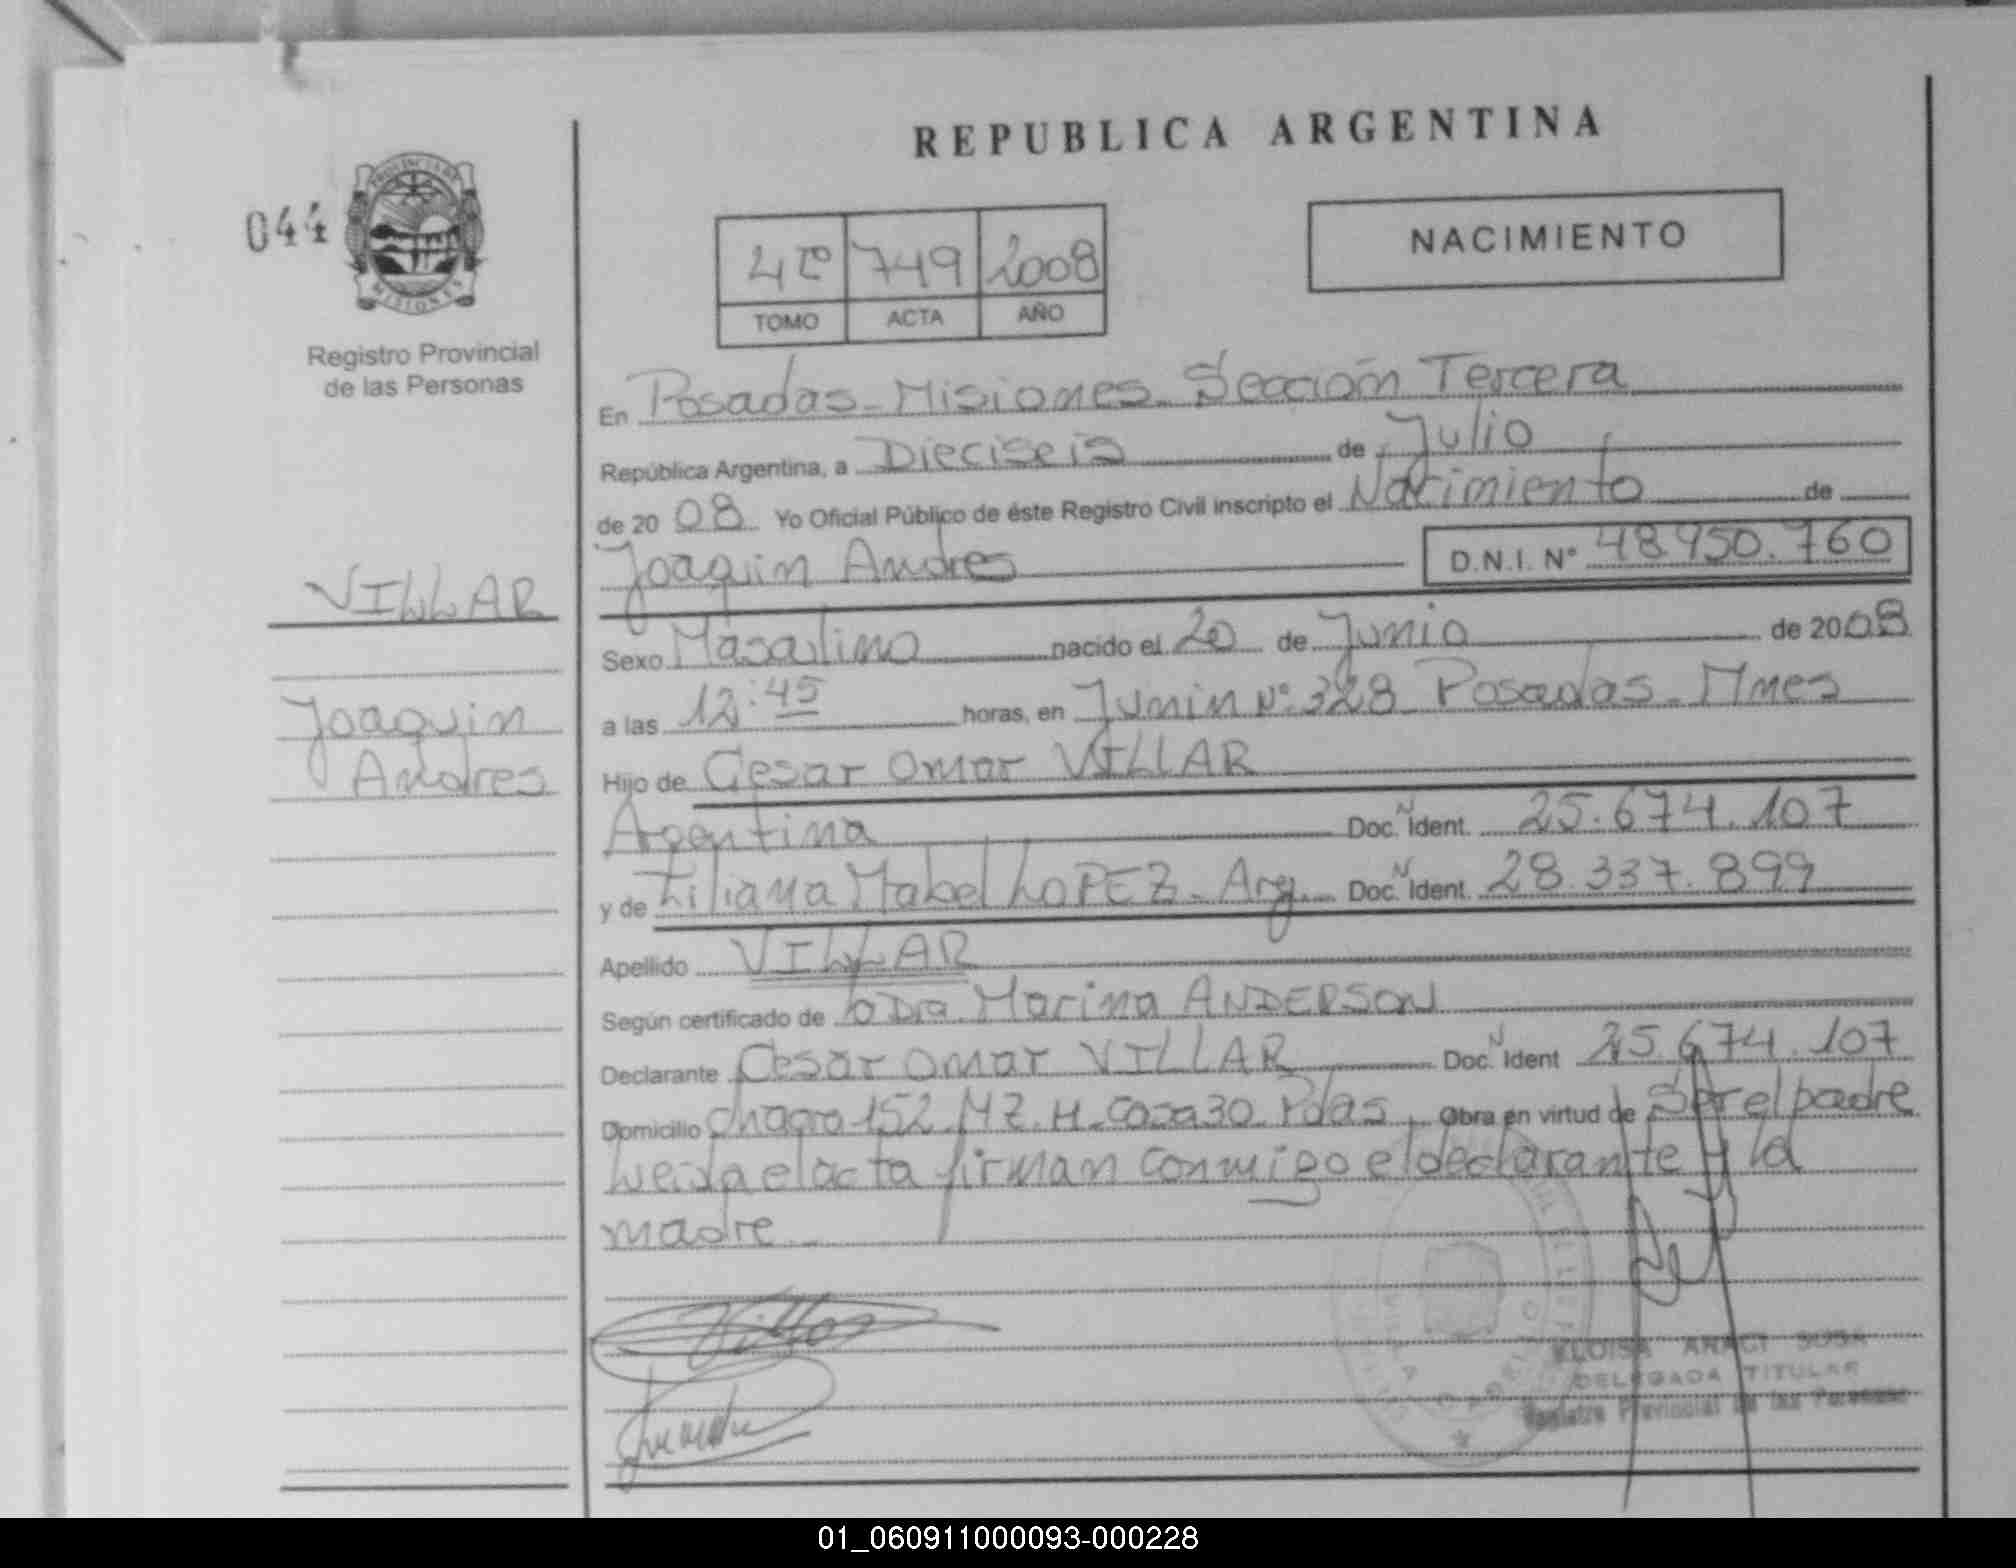 REPUBLICA ARGENTINA
044
PROVINCIA DE
MISIONES
Registro Provincial
de las Personas
4to 749 2008
TOMO ACTA AÑO
NACIMIENTO
En Posadas - Misiones - Sección Tercera
República Argentina, a Dieciseis de Julio
de 20 08 Yo Oficial Público de éste Registro Civil inscripto el Nacimiento de
Joaquin Andres D.N.I. N° 48.950.760
VILLAR
Joaquin
Andres
Sexo Masculino nacido el 20 de Junio de 2008
a las 12:45 horas, en Junin N°: 328 Posadas - Mnes
Hijo de Cesar Omar VILLAR
Argentina Doc. N Ident. 25.674.107
y de Liliana Mabel LOPEZ - Arg. Doc. N Ident. 28.337.899
Apellido VILLAR
Según certificado de Dra. Marina ANDERSON
Declarante Cesar Omar VILLAR Doc. N Ident 25.674.107
Domicilio Chacra 152 MZ. H - Casa 30 Pdas. Obra en virtud de Ser el padre
Leida el acta firman conmigo el declarante y la
madre.
Villar
ELOISA ARACI SOSA
DELEGADA TITULAR
Registro Provincial de las Personas
01_060911000093-000228